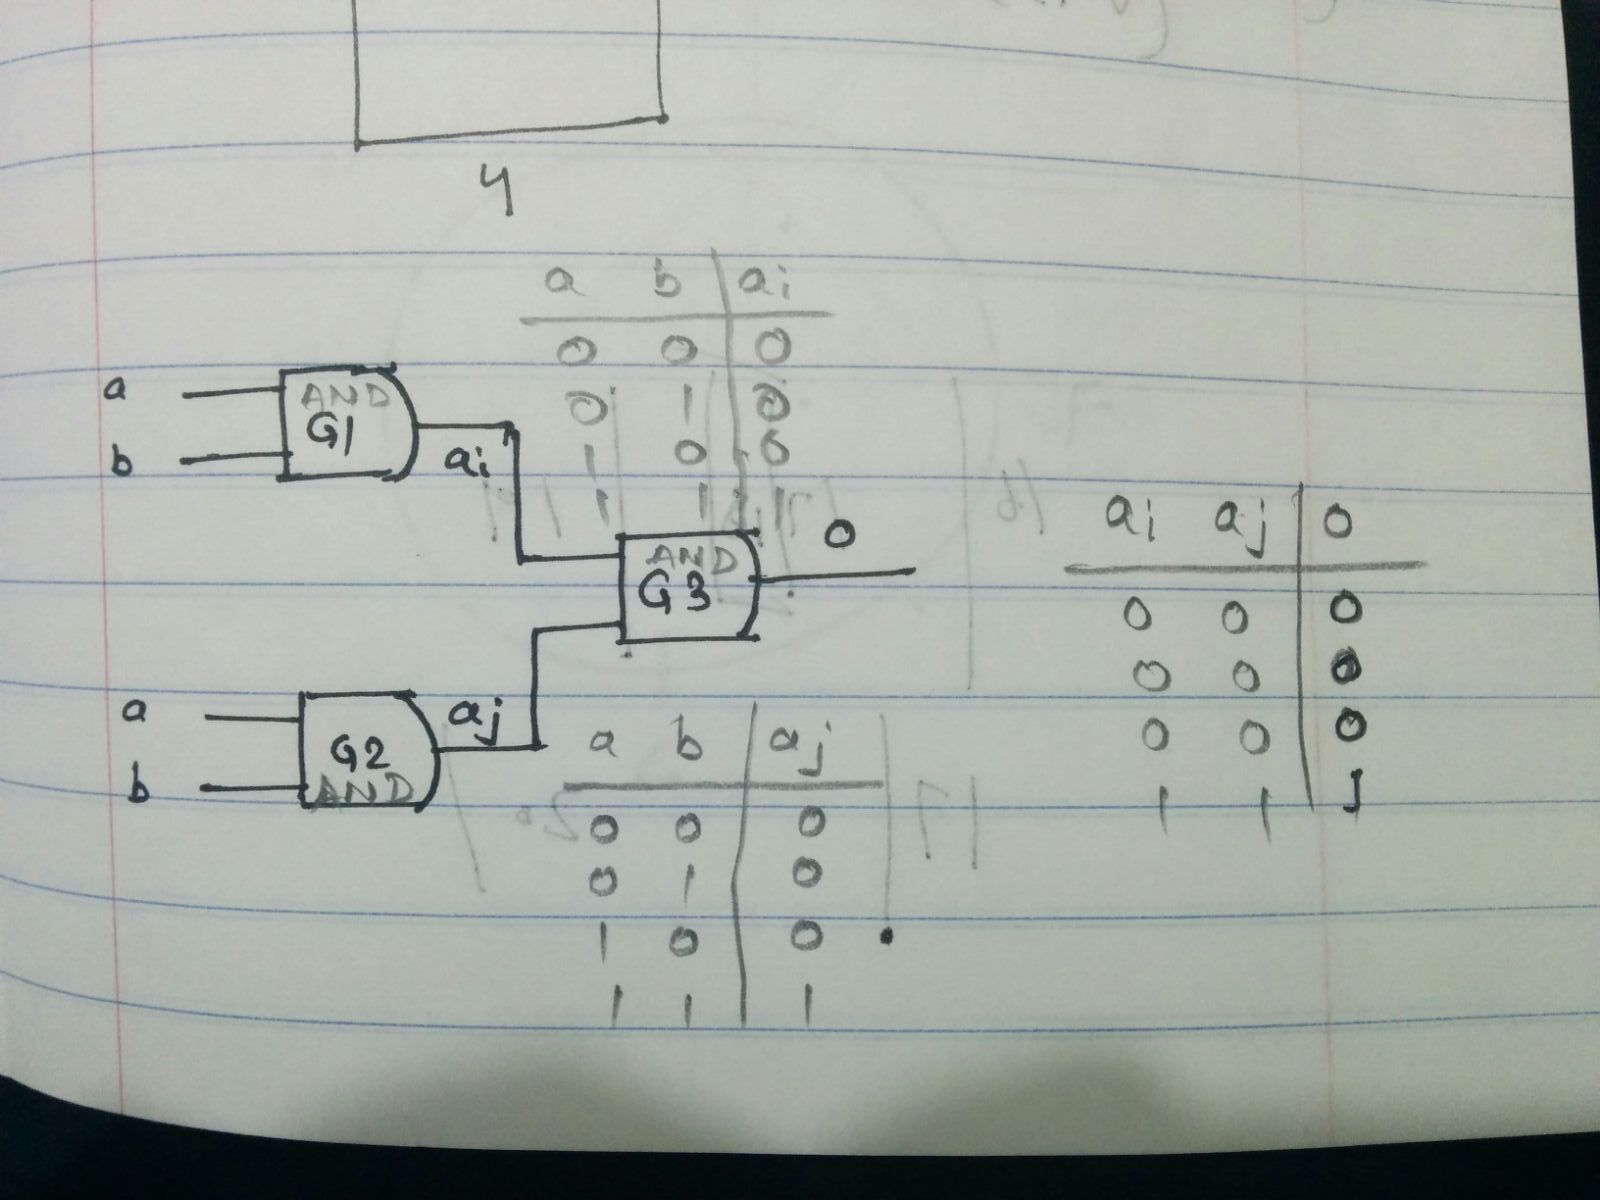 4
a b ai
0 0 0
0 1 0
1 0 0
1 1 1
a
b
AND
G1
ai
AND
G3
O
a
b
G2
AND
aj
a b aj
0 0 0
0 1 0
1 0 0
1 1 1
ai aj O
0 0 0
0 0 0
0 0 0
1 1 1